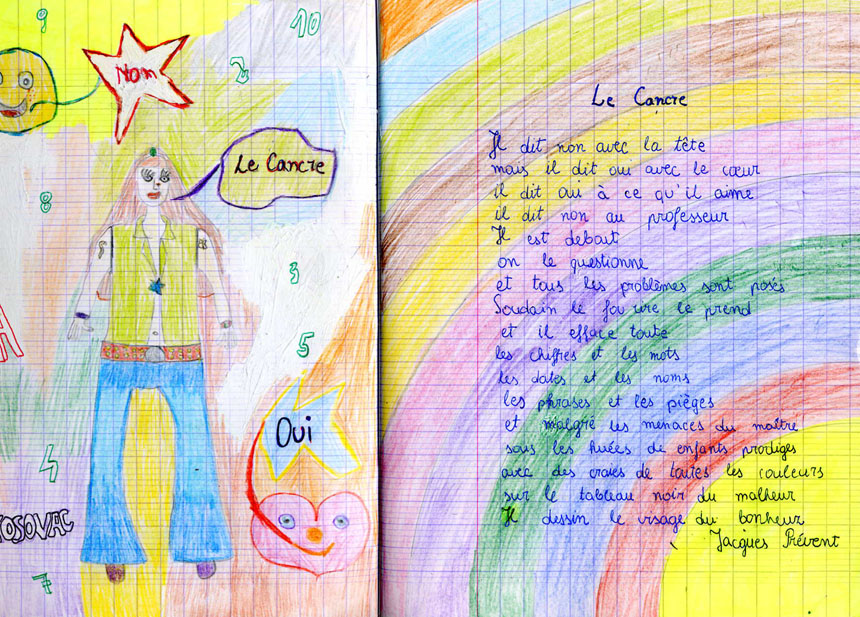 9
10
Non
2
Le Cancre
8
3
A
5
Oui
4
KOSOVAC
7
Le Cancre
Il dit non avec la tête
mais il dit oui avec le cœur
il dit oui à ce qu'il aime
il dit non au professeur
Il est debout
on le questionne
et tous les problèmes sont posés
Soudain le fou rire le prend
et il efface toute
les chiffres et les mots
les dates et les noms
les phrases et les pièges
et malgré les menaces du maître
sous les huées de enfants prodiges
avec des craies de toutes les couleurs
sur le tableau noir du malheur
Il dessin le visage du bonheur
Jacques Prévent